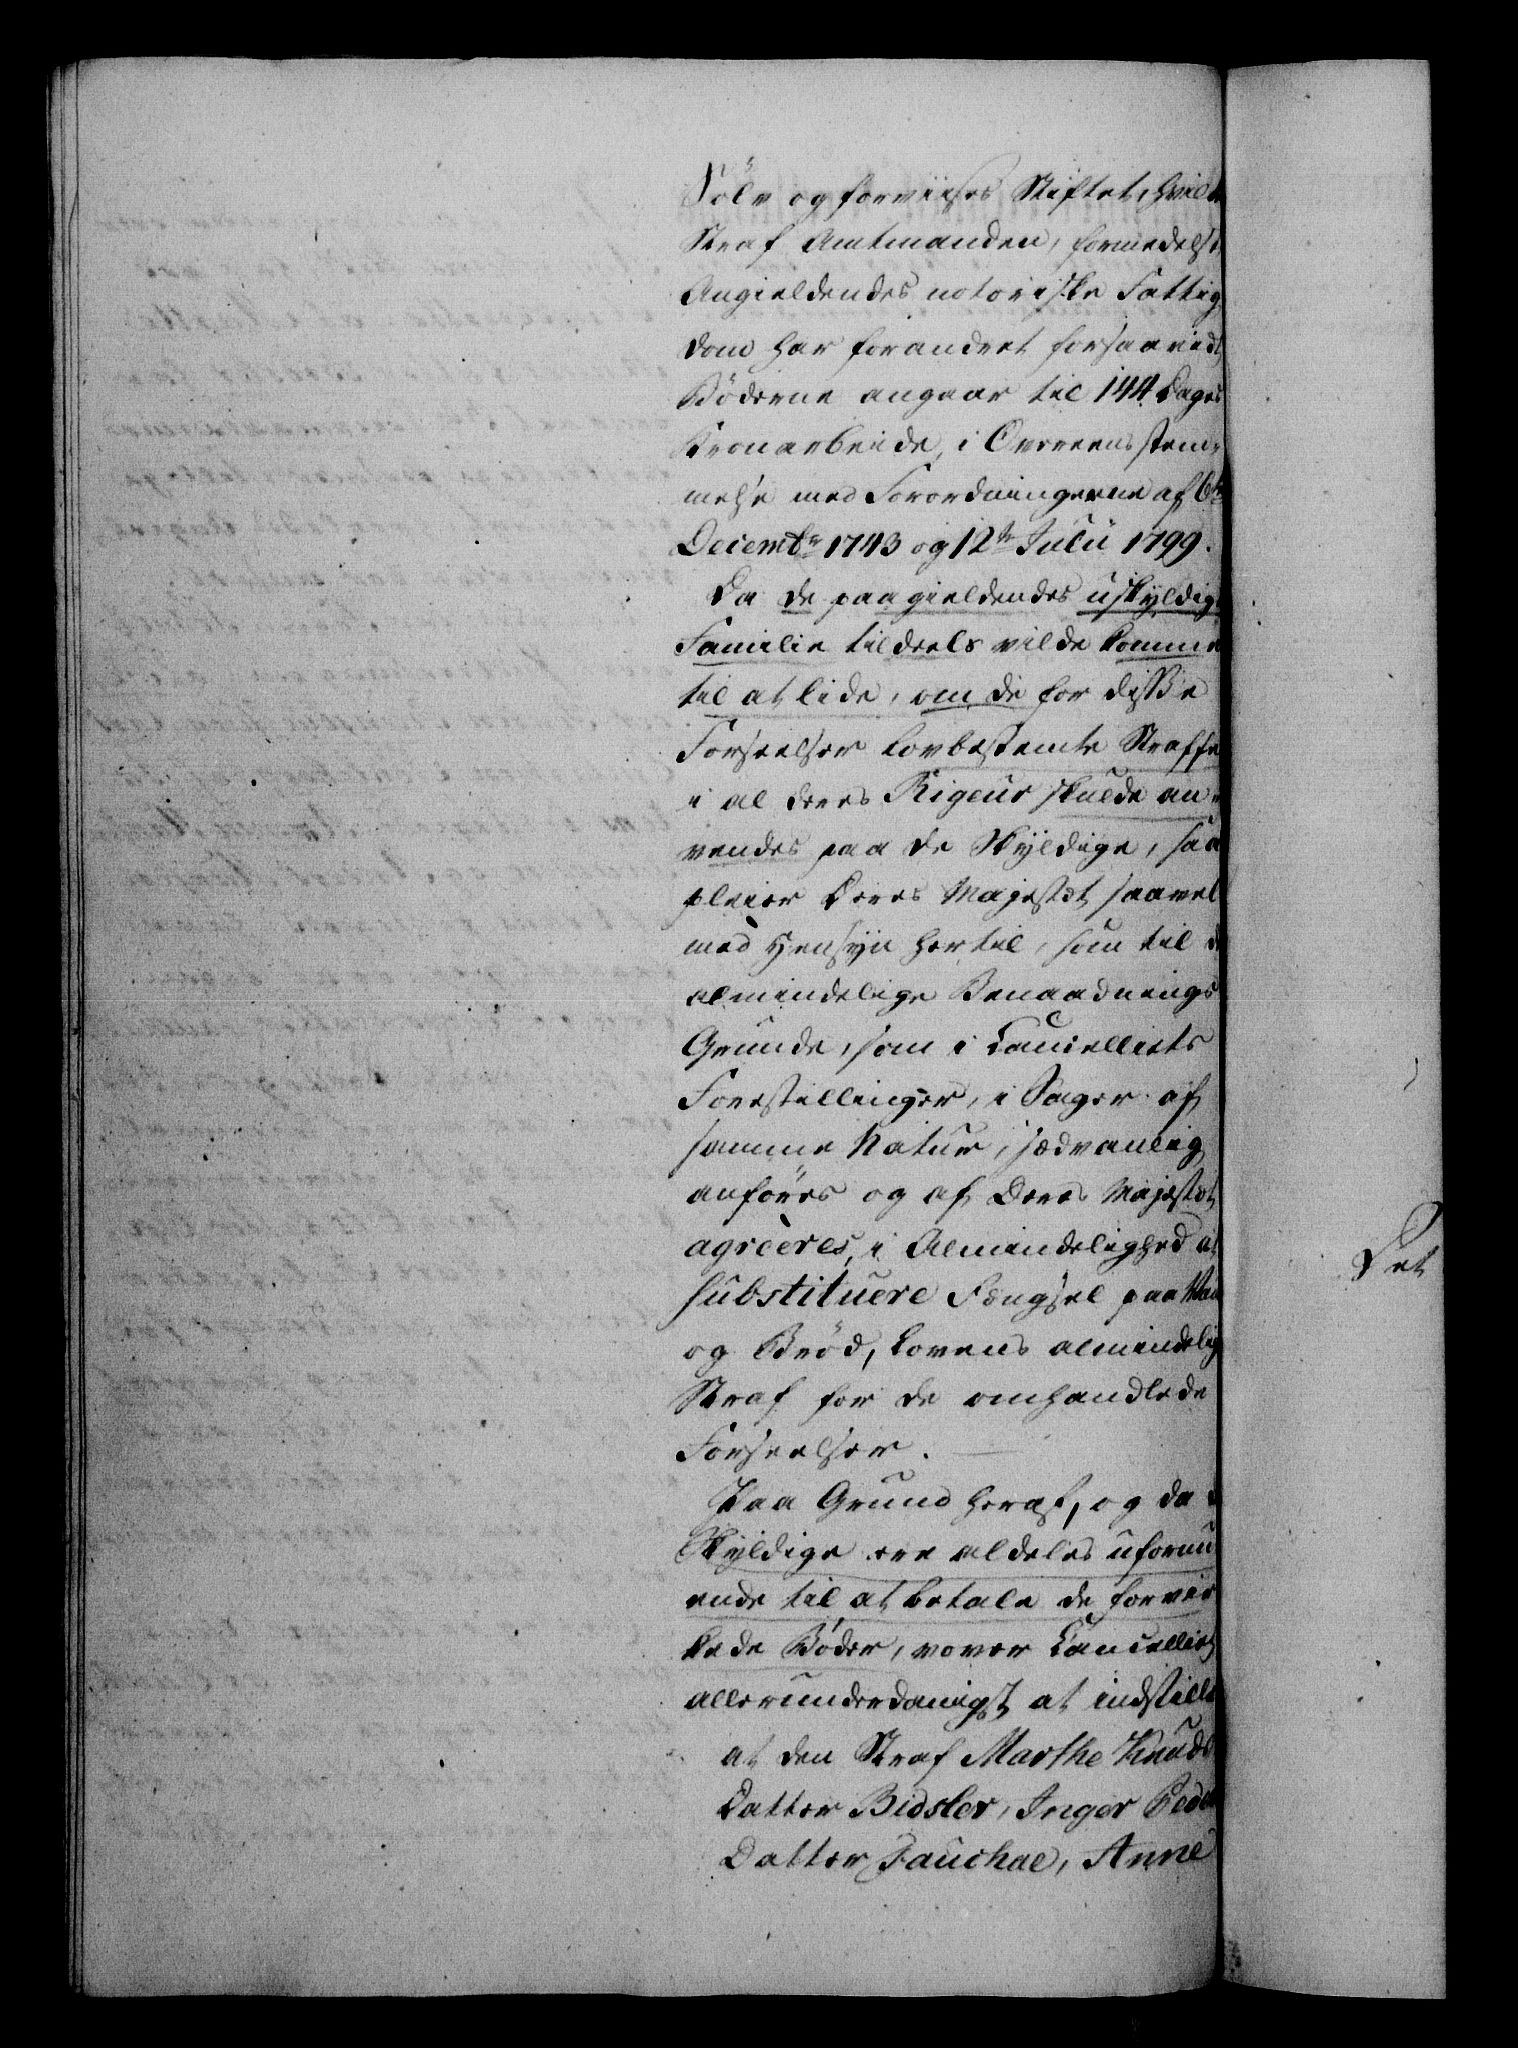 Sölv og forviises Stiftet, hvilke
Straf Amtmanden, formedelst
Angieldendes notoriske Fattig
dom har forandret forsaavidt
Böderne angaar til 144 Dages
Kronarbeide, i Overeensstem-
melse med Forordningerne af 6te
Decembr 1743 og 12te Julii 1799.
Da de paagieldendes uskyldige
Familie tildeels vilde komme
til at lide, om de for disse
Forseelser lovbestemte Straffe
i al deres Rigeur skulde an-
vendes paa de Skyldige, saa
pleier Deres Majestæt saavel
med Hensyn hertil, som til de
almindelige Benaadnings
Grunde, som i Cancelliets
Forestillinger, i Sager af
samme Natur, sædvanlig
anföres og af Deres Majestæt
agrèeres, i Almindelighed at
substituere Fængsel paa Vand
og Bröd, Lovens almindelige
Straf for de omhandlede
Forseelser.
Paa Grund heraf, og da de
Skyldige ere aldeles uformu
ende til at betale de forvir
kede Böder, vover Cancelliet
allerunderdanigst at indstille
at den Straf Marthe Knuds
Datter Bidsler, Inger Peders
Datter Fauchal, Anne
Det